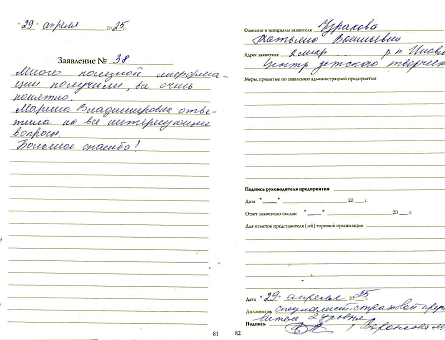 "29" апреля 2025.
Заявление № 38
Много полезной информа-
ции получили, все очень
понятно.
Марина Владимировна отве-
тила на все интересующие
вопросы.
Большое спасибо!
81
Фамилия и инициалы заявителя
Адрес заявителя р.п.
Центр детского творчес
Меры, принятые по заявлению администрацией предприятия
Подпись руководителя предприятия
Дата " " 20 г.
Ответ заявителю послан " " 20 г.
Для отметок представителя (-ей) торговой организации
Дата "29" апреля 2025
Должность специалист страховой
Подпись
82